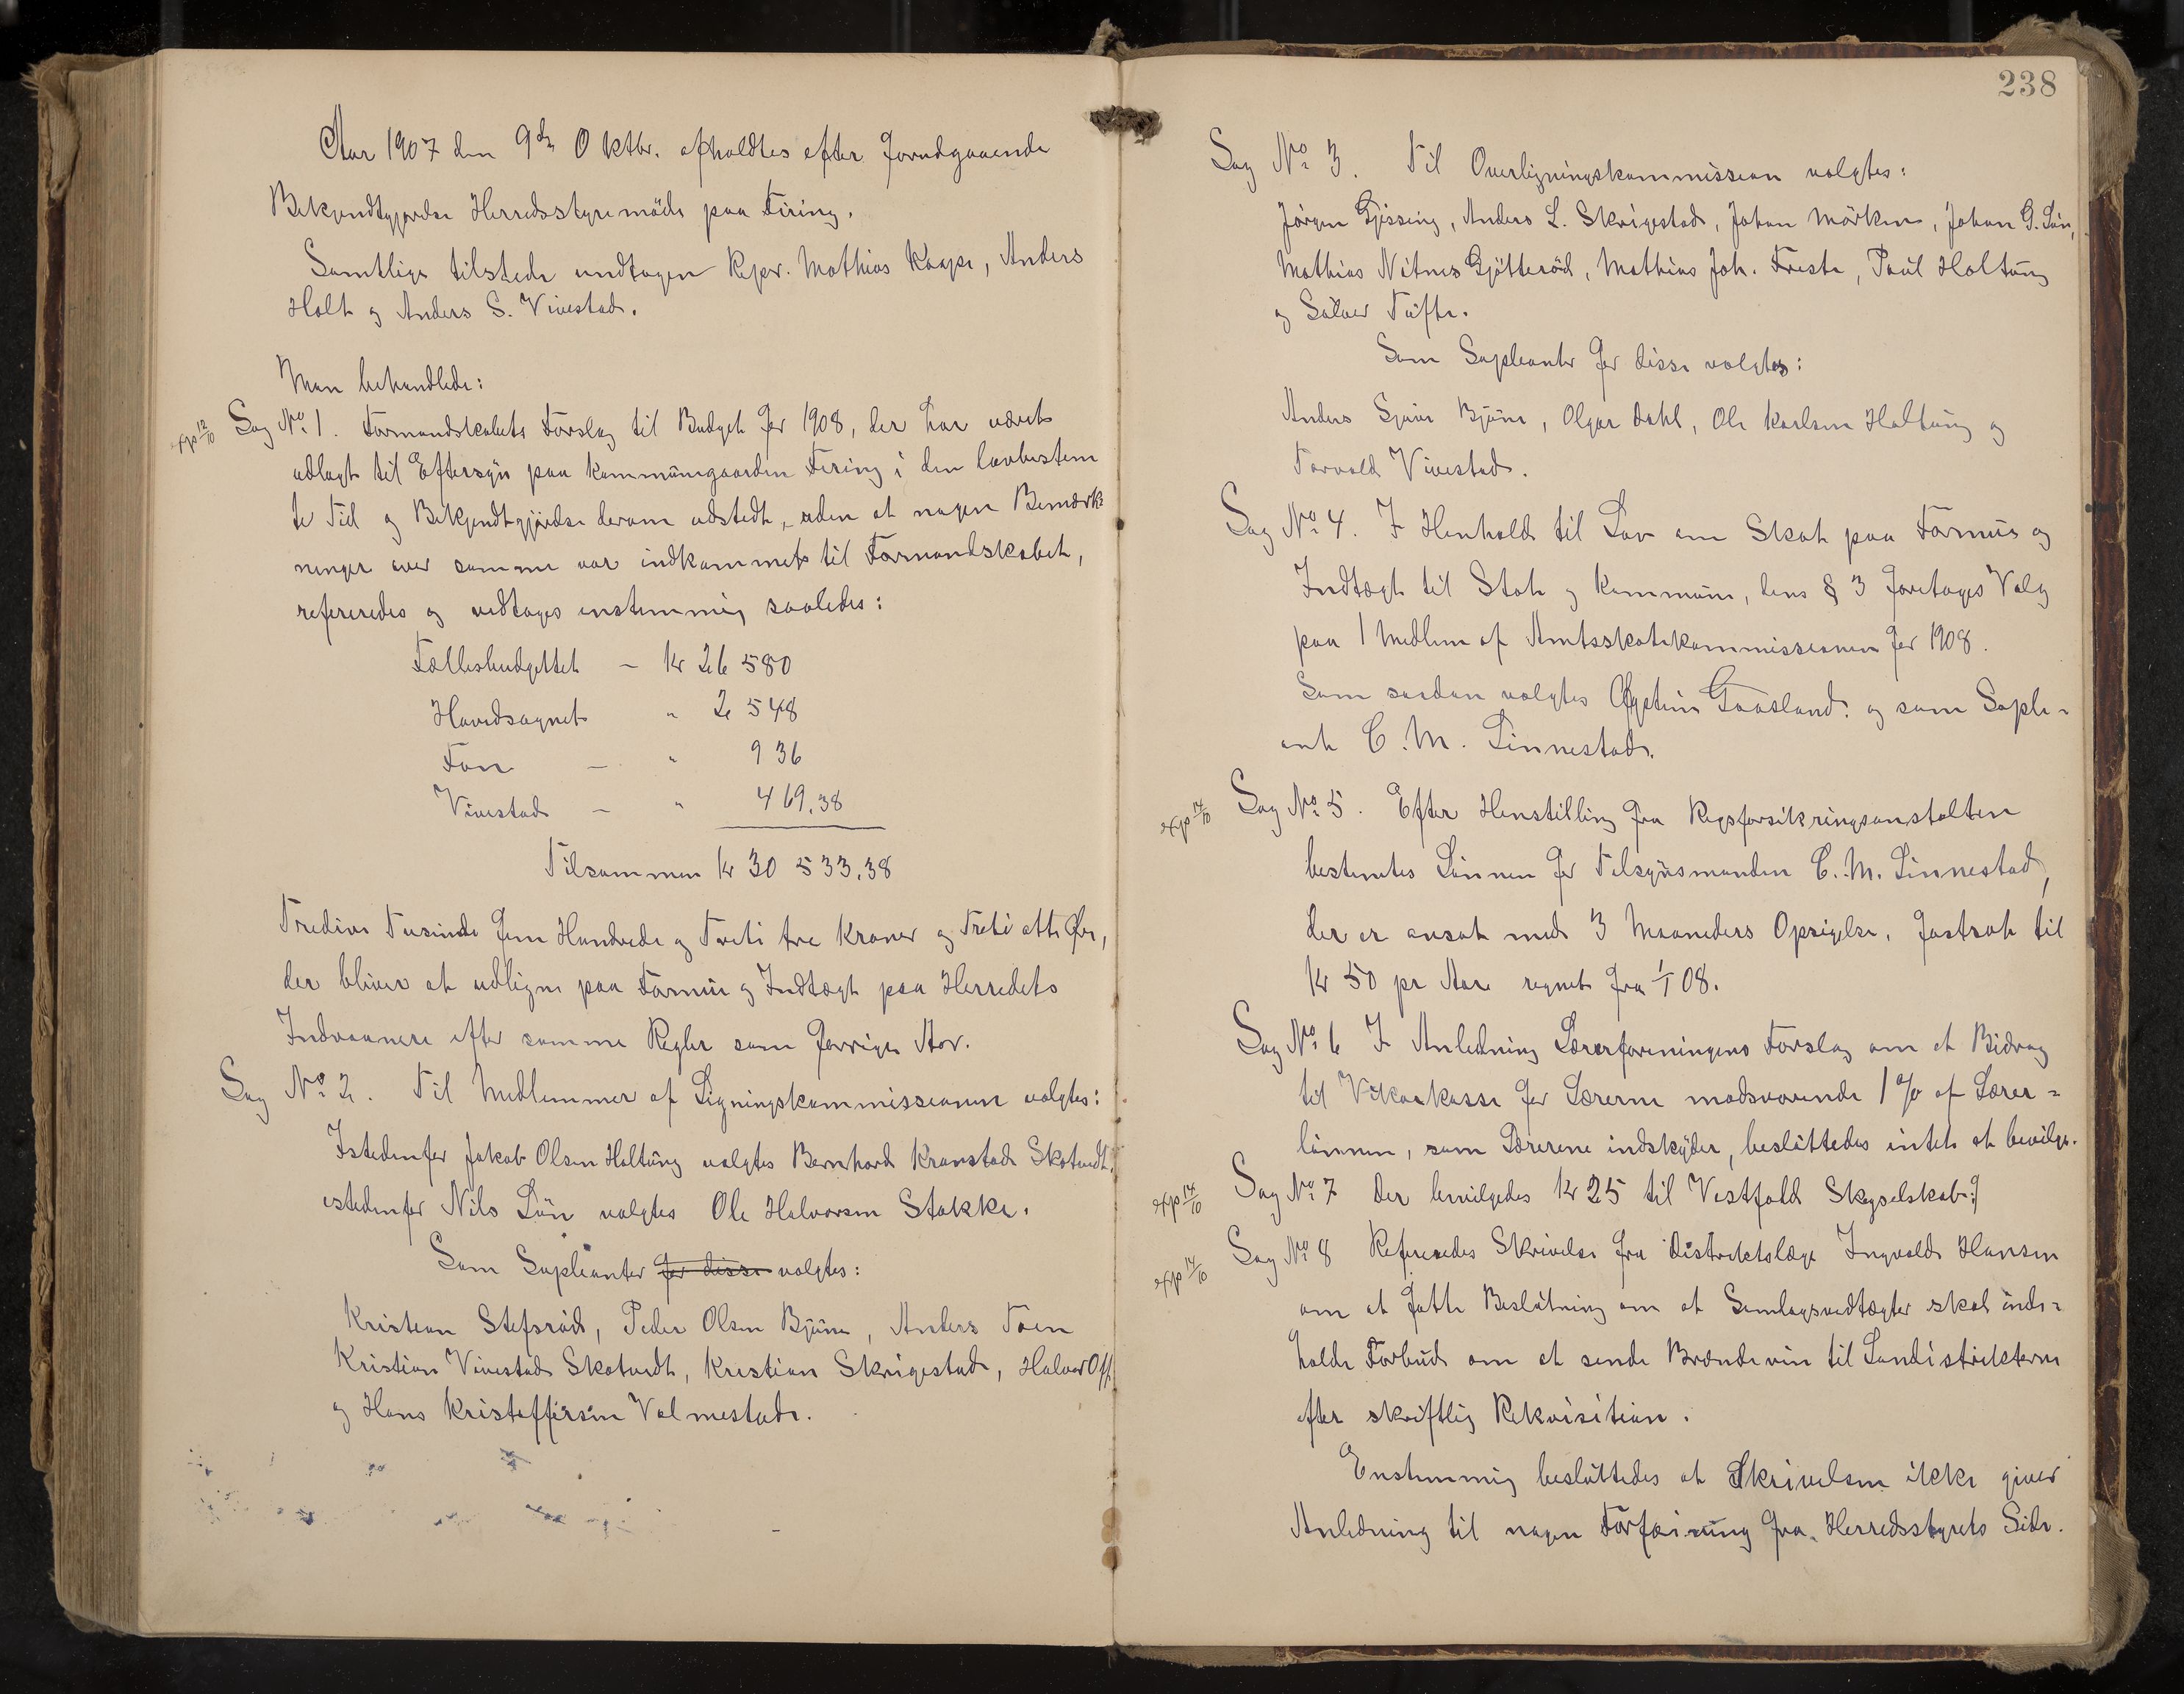 Aar 1907 den 9de Oktbr. afholdtes efter forudgaaende
Bekjendtgjørelse Herredsstyremöde paa Firing.
Samtlige tilstede undtagen Repr. Mathias Kaape, Anders
Holt og Anders S. Vivestad.
Man behandlede:
exp 12/10 Sag No 1. Formandskabets Forslag til Budget for 1908, der har været
udlagt til Eftersyn paa Kommunegaarden Firing i den lovbestem
te Tid og Bekjendtgjørelse derom udstedt, uden at nogen Bemærk-
ninger over samme var indkommet til Formandskabet,
refereredes og vedtoges enstemmig saaledes:
Fællesbudgettet – Kr 26 580
Hovedsognet " 2 548
Fon – " 936
Vivestad – " 469.38
Tilsammen Kr 30 533.38
Tredive Tusinde fem Hundrede og Treti tre Kroner og Treti otte Øre,
der bliver at udligne paa Formue og Indtægt paa Herredets
Indvaanere efter samme Regler som forrige Aar.
Sag No 2. Til Medlemmer af Ligningskommissionen valgtes:
Istedenfor Jakob Olsen Haltung valgtes Bernhard Kronstad Skotvedt,
istedenfor Nils Lün valgtes Ole Halvorsen Stokke.
Som Supleanter for disse valgtes:
Kristian Stefsröd, Peder Olsen Bjüne, Anders Foen
Kristian Vivestad Skotvedt, Kristian Skrigestad, Halvor
og Hans Kristoffersen Valmestad.
238
Sag No 3. Til Overligningskommission valgtes:
Jörgen Gjissing, Anders L. Skrigestad, Johan Mörken, Johan G. Lün,
Mathias Nitnes Gjötteröd, Mathias Joh. Freste, Paul Haltung
og Sülver Tufte.
Som Supleanter for disse valgtes:
Anders Bjüne, Olgar Dahl, Ole Karlsen Haltung og
Torvald Vivestad.
Sag No 4. I Henhold til Lov om Skat paa Formue og
Indtægt til Stat og Kommune, dens § 3 foretoges Valg
paa 1 Medlem af Amtsskatekommissionen for 1908.
Som saadan valgtes Øystein Gaasland og som Suple-
ant C. M. Linnestad.
exp 14/10 Sag No 5. Efter Henstilling fra Rigsforsikringsanstalten
bestemtes Lönnen for Tilsynsmanden C. M. Linnestad,
der er ansat med 3 Maaneders Opsigelse, fastsat til
Kr 50 pr Aar regnet fra 1/1 08.
Sag No 6 I Anledning Lærerforeningens Forslag om et Bidrag
til Vikarkasse for Lærerne modsvarende 1 % af Lærer-
lönnen, som Lærerene indskyder, besluttedes intet at bevilge.
exp 14/10 Sag No 7 Der bevilgedes Kr 25 til Vestfold Skogselskab.
exp 14/10 Sag No 8 Refereredes Skrivelse fra Distriktslæge Ingvald Hansen
om at fatte Beslutning om at Samlagsvedtægter skal inde-
holde Forbud om at sende Brændevin til Landistrikterne
efter skriftlig Rekvisition.
Enstemmig besluttedes at Skrivelsen ikke giver
Anledning til nogen Forføining fra Herredsstyrets Side.